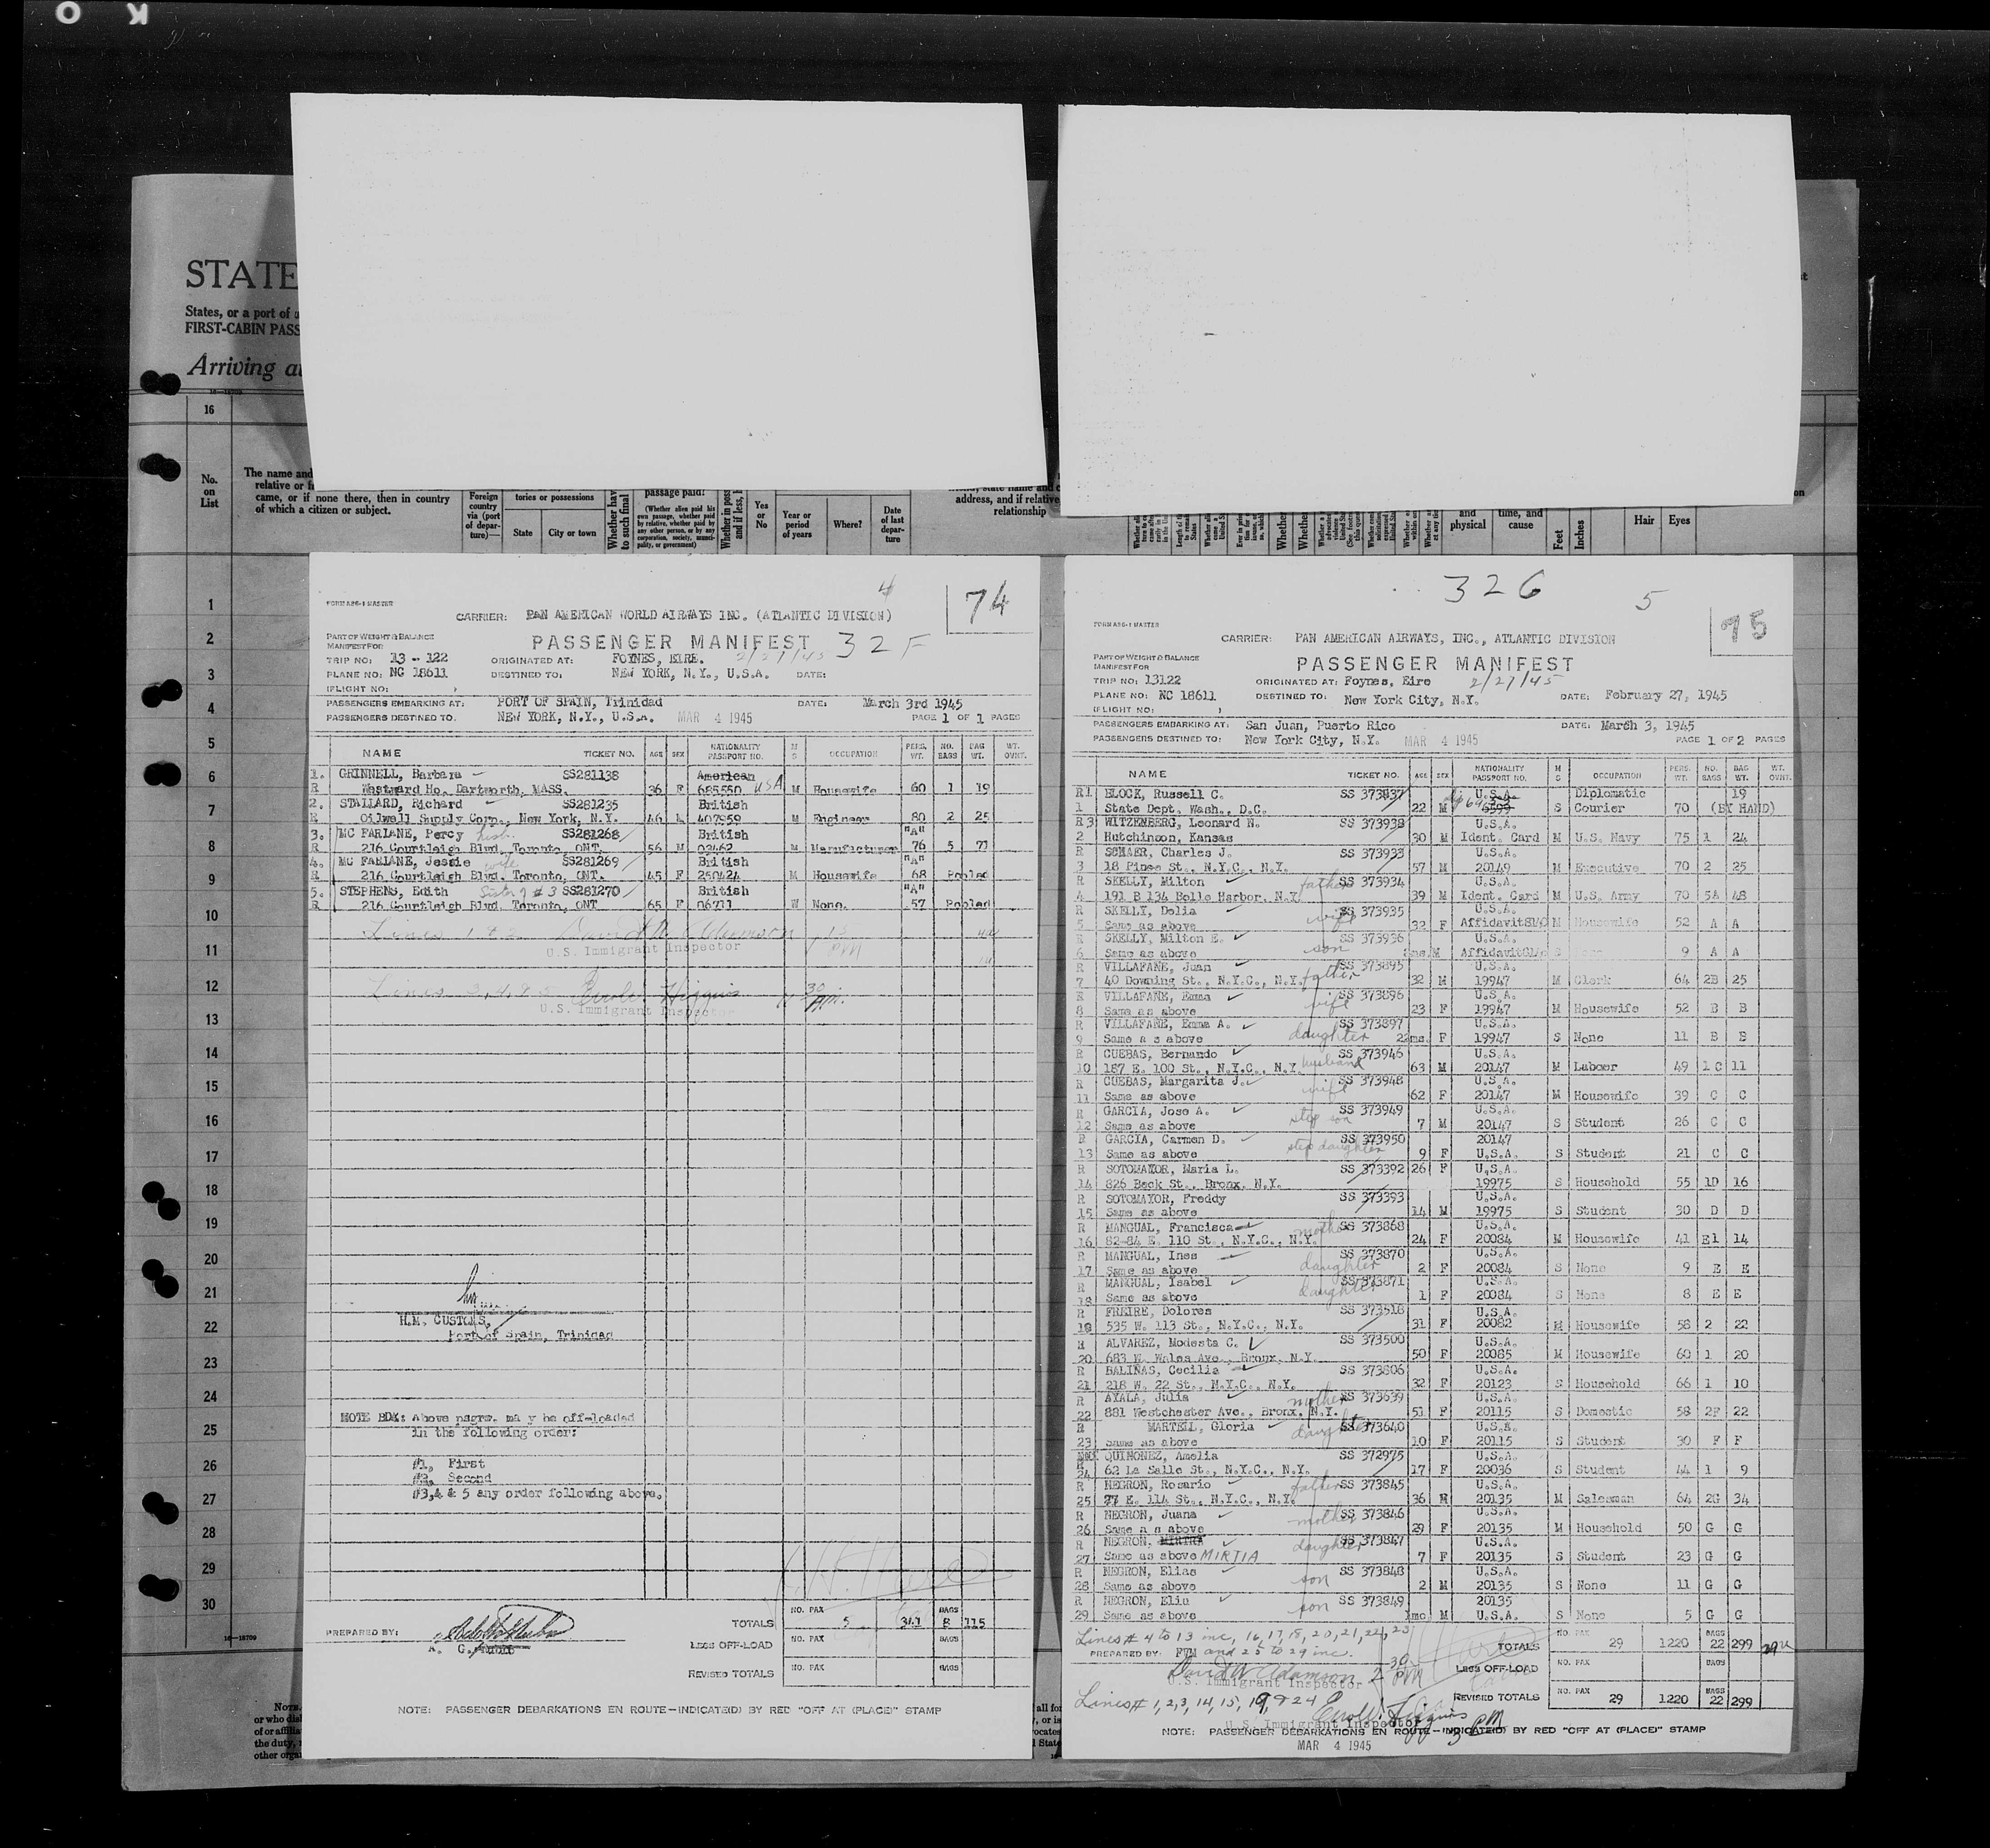 O K
STATE
States, or a port of
FIRST-CABIN PASS
Arriving at
16
No. on List
The name and
relative or
came, or if none there, then in country
of which a citizen or subject.
Foreign country via (port of departure)—
tories or possessions
State
City or town
Whether have
to such final
passage paid?
(Whether alien paid his own passage, whether paid by relative, whether paid by any other person, or by any corporation, society, municipality, or government)
Whether in poss
and if less,
Yes or No
Year or period of years
Where?
Date of last departure
address, and if relative
relationship
and physical
time, and cause
Feet
Inches
Hair
Eyes
1
2
3
4
5
6
7
8
9
10
11
12
13
14
15
16
17
18
19
20
21
22
23
24
25
26
27
28
29
30
16—18709
4
74
FORM A86-1 MASTER
CARRIER: PAN AMERICAN WORLD AIRWAYS INC. (ATLANTIC DIVISION)
PART OF WEIGHT & BALANCE
MANIFEST FOR
PASSENGER MANIFEST 32F
TRIP NO: 13 - 122 ORIGINATED AT: FOYNES, EIRE. 2/27/45
PLANE NO: NC 18611 DESTINED TO: NEW YORK, N.Y., U.S.A. DATE:
(FLIGHT NO: )
PASSENGERS EMBARKING AT: PORT OF SPAIN, Trinidad DATE: March 3rd 1945
PASSENGERS DESTINED TO. NEW YORK, N.Y., U.S.A. MAR 4 1945 PAGE 1 OF 1 PAGES
NAME TICKET NO. AGE SEX NATIONALITY PASSPORT NO. M S OCCUPATION PERS. WT. NO. BAGS BAG WT. WT. OVNT.
1. GRINNELL, Barbara SS281138 American
R Westward Ho. Dartworth, MASS. 36 F 685550 USA M Housewife 60 1 19
2. STALLARD, Richard SS281235 British
R Oilwell Supply Corp., New York, N.Y. 46 M 407959 M Engineer 80 2 25
3. MC FARLANE, Percy husb. SS281268 British "A"
R 216 Courtleigh Blvd. Toronto, ONT. 56 M 03462 M Manufacturer 76 5 71
4. MC FARLANE, Jessie wife SS281269 British "A"
R 216 Courtleigh Blvd. Toronto, ONT. 45 F 250424 M Housewife 68 Pooled
5. STEPHENS, Edith Sister of #3 SS281270 British "A"
R 216 Courtleigh Blvd. Toronto, ONT 65 F 06711 W None. 57 Pooled
Lines 1 & 2 David W. Adamson 1 15 PM
U.S. Immigrant Inspector
Lines 3, 4, & 5 Higgins 30 PM.
U.S. Immigrant Inspector
H.M. CUSTOMS,
Port of Spain, Trinidad
NOTE BDA: Above psgrs. ma y be off-loaded
in the following order:
#1, First
#2, Second
#3,4 & 5 any order following above.
TOTALS NO. PAX 5 341 BAGS 8 115
PREPARED BY: A. G.
LESS OFF-LOAD NO. PAX BAGS
REVISED TOTALS NO. PAX BAGS
NOTE: PASSENGER DEBARKATIONS EN ROUTE—INDICATE(D) BY RED "OFF AT (PLACE)" STAMP
326 5
75
FORM A86-1 MASTER
CARRIER: PAN AMERICAN AIRWAYS, INC., ATLANTIC DIVISION
PART OF WEIGHT & BALANCE
MANIFEST FOR
PASSENGER MANIFEST
TRIP NO: 13122 ORIGINATED AT: Foynes, Eire 2/27/45
PLANE NO: NC 18611 DESTINED TO: New York City, N.Y. DATE: February 27, 1945
(FLIGHT NO: )
PASSENGERS EMBARKING AT: San Juan, Puerto Rico DATE: March 3, 1945
PASSENGERS DESTINED TO: New York City, N.Y. MAR 4 1945 PAGE 1 OF 2 PAGES
NAME TICKET NO. AGE SEX NATIONALITY PASSPORT NO. M S OCCUPATION PERS. WT. NO. BAGS BAG WT. WT. OVNT.
R1 BLOCK, Russell C. SS 373837 U.S.A. Diplomatic 19
1 State Dept. Wash., D.C. 22 M 6599 S Courier 70 (BY HAND)
R3 WITZENBERG, Leonard N. SS 373938 U.S.A.
2 Hutchinson, Kansas 30 M Ident. Card M U.S. Navy 75 1 24
R SCHAER, Charles J. SS 373933 U.S.A.
3 18 Pines St., N.Y.C., N.Y. 57 M 20149 M Executive 70 2 25
R SKELLY, Milton father SS 373934 U.S.A.
4 191 B 134 Belle Harbor, N.Y. 39 M Ident. Card M U.S. Army 70 5A 48
R SKELLY, Delia wife SS 373935 U.S.A.
5 Same as above 32 F Affidavit M Housewife 52 A A
R SKELLY, Milton E. son SS 373936 U.S.A.
6 Same as above M Affidavit S 9 A A
R VILLAFANE, Juan father SS 373895 U.S.A.
7 40 Downing St., N.Y.C., N.Y. 32 M 19947 M Clerk 64 2B 25
R VILLAFAÑE, Emma wife SS 373896 U.S.A.
8 Same as above 23 F 19947 M Housewife 52 B B
R VILLAFAÑE, Emma A. daughter SS 373897 U.S.A.
9 Same a s above 22ms. F 19947 S None 11 B B
R CUEBAS, Bernando husband SS 373946 U.S.A.
10 187 E. 100 St., N.Y.C., N.Y. 63 M 20147 M Laboer 49 1 C 11
R CUEBAS, Margarita J. wife SS 373948 U.S.A.
11 Same as above 62 F 20147 M Housewife 39 C C
R GARCIA, Jose A. step son SS 373949 U.S.A.
12 Same as above 7 M 20147 S Student 26 C C
R GARCIA, Carmen D. step daughter SS 373950 20147
13 Same as above 9 F U.S.A. S Student 21 C C
R SOTOMAYOR, Maria L. SS 373392 26 F U.S.A.
14 826 Beck St., Bronx, N.Y. 19975 S Household 55 1D 16
R SOTOMAYOR, Freddy SS 373393 U.S.A.
15 Same as above 14 M 19975 S Student 30 D D
R MANGUAL, Francisca mother SS 373868 U.S.A.
16 82-84 E. 110 St., N.Y.C., N.Y. 24 F 20084 M Housewife 41 E1 14
R MANGUAL, Ines daughter SS 373870 U.S.A.
17 Same as above 2 F 20084 S None 9 E E
R MANGUAL, Isabel daughter SS 373871 U.S.A.
18 Same as above 1 F 20084 S None 8 E E
R FREIRE, Dolores SS 373518 U.S.A.
19 535 W. 113 St., N.Y.C., N.Y. 31 F 20082 M Housewife 58 2 22
R ALVAREZ, Modesta C. SS 373500 U.S.A.
20 683 W. Wales Ave., Bronx, N.Y. 50 F 20085 M Housewife 60 1 20
R BALIÑAS, Cecilia SS 373806 U.S.A.
21 218 W. 22 St., N.Y.C., N.Y. 32 F 20123 S Household 66 1 10
R AYALA, Julia mother SS 373639 U.S.A.
22 881 Westchester Ave., Bronx, N.Y. 51 F 20115 S Domestic 58 2F 22
R MARTELL, Gloria daughter SS 373640 U.S.A.
23 Same as above 10 F 20115 S Student 30 F F
R QUIÑONEZ, Amelia SS 372975 U.S.A.
24 62 La Salle St., N.Y.C., N.Y. 17 F 20036 S Student 44 1 9
R NEGRON, Rosario father SS 373845 U.S.A.
25 77 E. 114 St., N.Y.C., N.Y. 36 M 20135 M Salesman 64 2G 34
R NEGRON, Juana mother SS 373846 U.S.A.
26 Same a s above 29 F 20135 M Household 50 G G
R NEGRON, daughter SS 373847 U.S.A.
27 Same as above MIRTIA 7 F 20135 S Student 23 G G
R NEGRON, Elias son SS 373848 U.S.A.
28 Same as above 2 M 20135 S None 11 G G
R NEGRON, Eliu son SS 373849 20135
29 Same as above 1mo. M U.S.A. S None 5 G G
Lines # 4 to 13 inc, 16, 17, 18, 20, 21, 22, 23
PREPARED BY: FWM and 25 to 29 inc.
TOTALS NO. PAX 29 1220 BAGS 22 299
David W Adamson 2 30 PM
U.S. Immigrant Inspector
LESS OFF-LOAD NO. PAX BAGS
Lines # 1, 2, 3, 14, 15, 19, & 24 Higgins 3 PM
REVISED TOTALS NO. PAX 29 1220 BAGS 22 299
U.S. Immigrant Inspector
NOTE: PASSENGER DEBARKATIONS EN ROUTE—INDICATE(D) BY RED "OFF AT (PLACE)" STAMP
MAR 4 1945
16—18709
NOTE.
or who
of or affilia
the duty,
other orga
all for